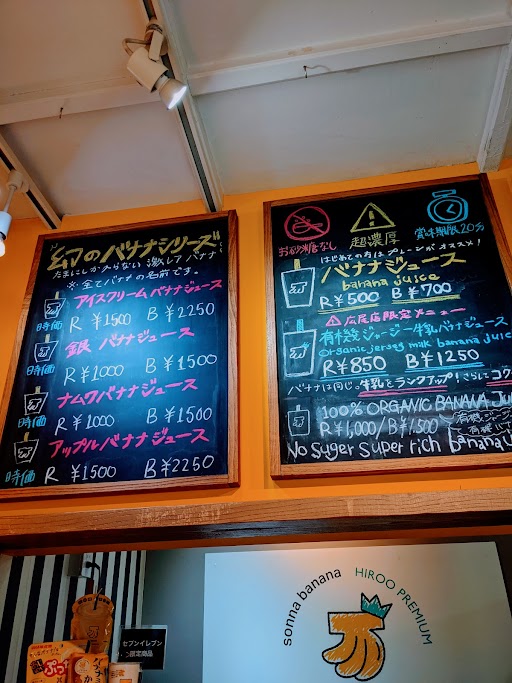 幻のバナナシリーズ
たまにしか入らない激レアバナナ
※全てバナナの名前です。
アイスクリームバナナジュース
時価 R ¥1500 B ¥2250
銀バナナジュース
時価 R ¥1000 B ¥1500
ナムワバナナジュース
時価 R ¥1000 B ¥1500
アップルバナナジュース
時価 R ¥1500 B ¥2250
お砂糖なし 超濃厚 賞味期限20分
はじめての方はプレーンがオススメ!
バナナジュース
banana juice
R ¥500 B ¥700
広尾店限定メニュー
有機ジャージー牛乳バナナジュース
organic jersey milk banana juice
R ¥850 B ¥1250
バナナは同じ、牛乳をランクアップ!さらにコク
100% ORGANIC BANANA Ju
R ¥1,000 / B ¥1,500
No Suger Super rich banana
sonna banana HIROO PREMIUM
セブンイレブン
限定商品